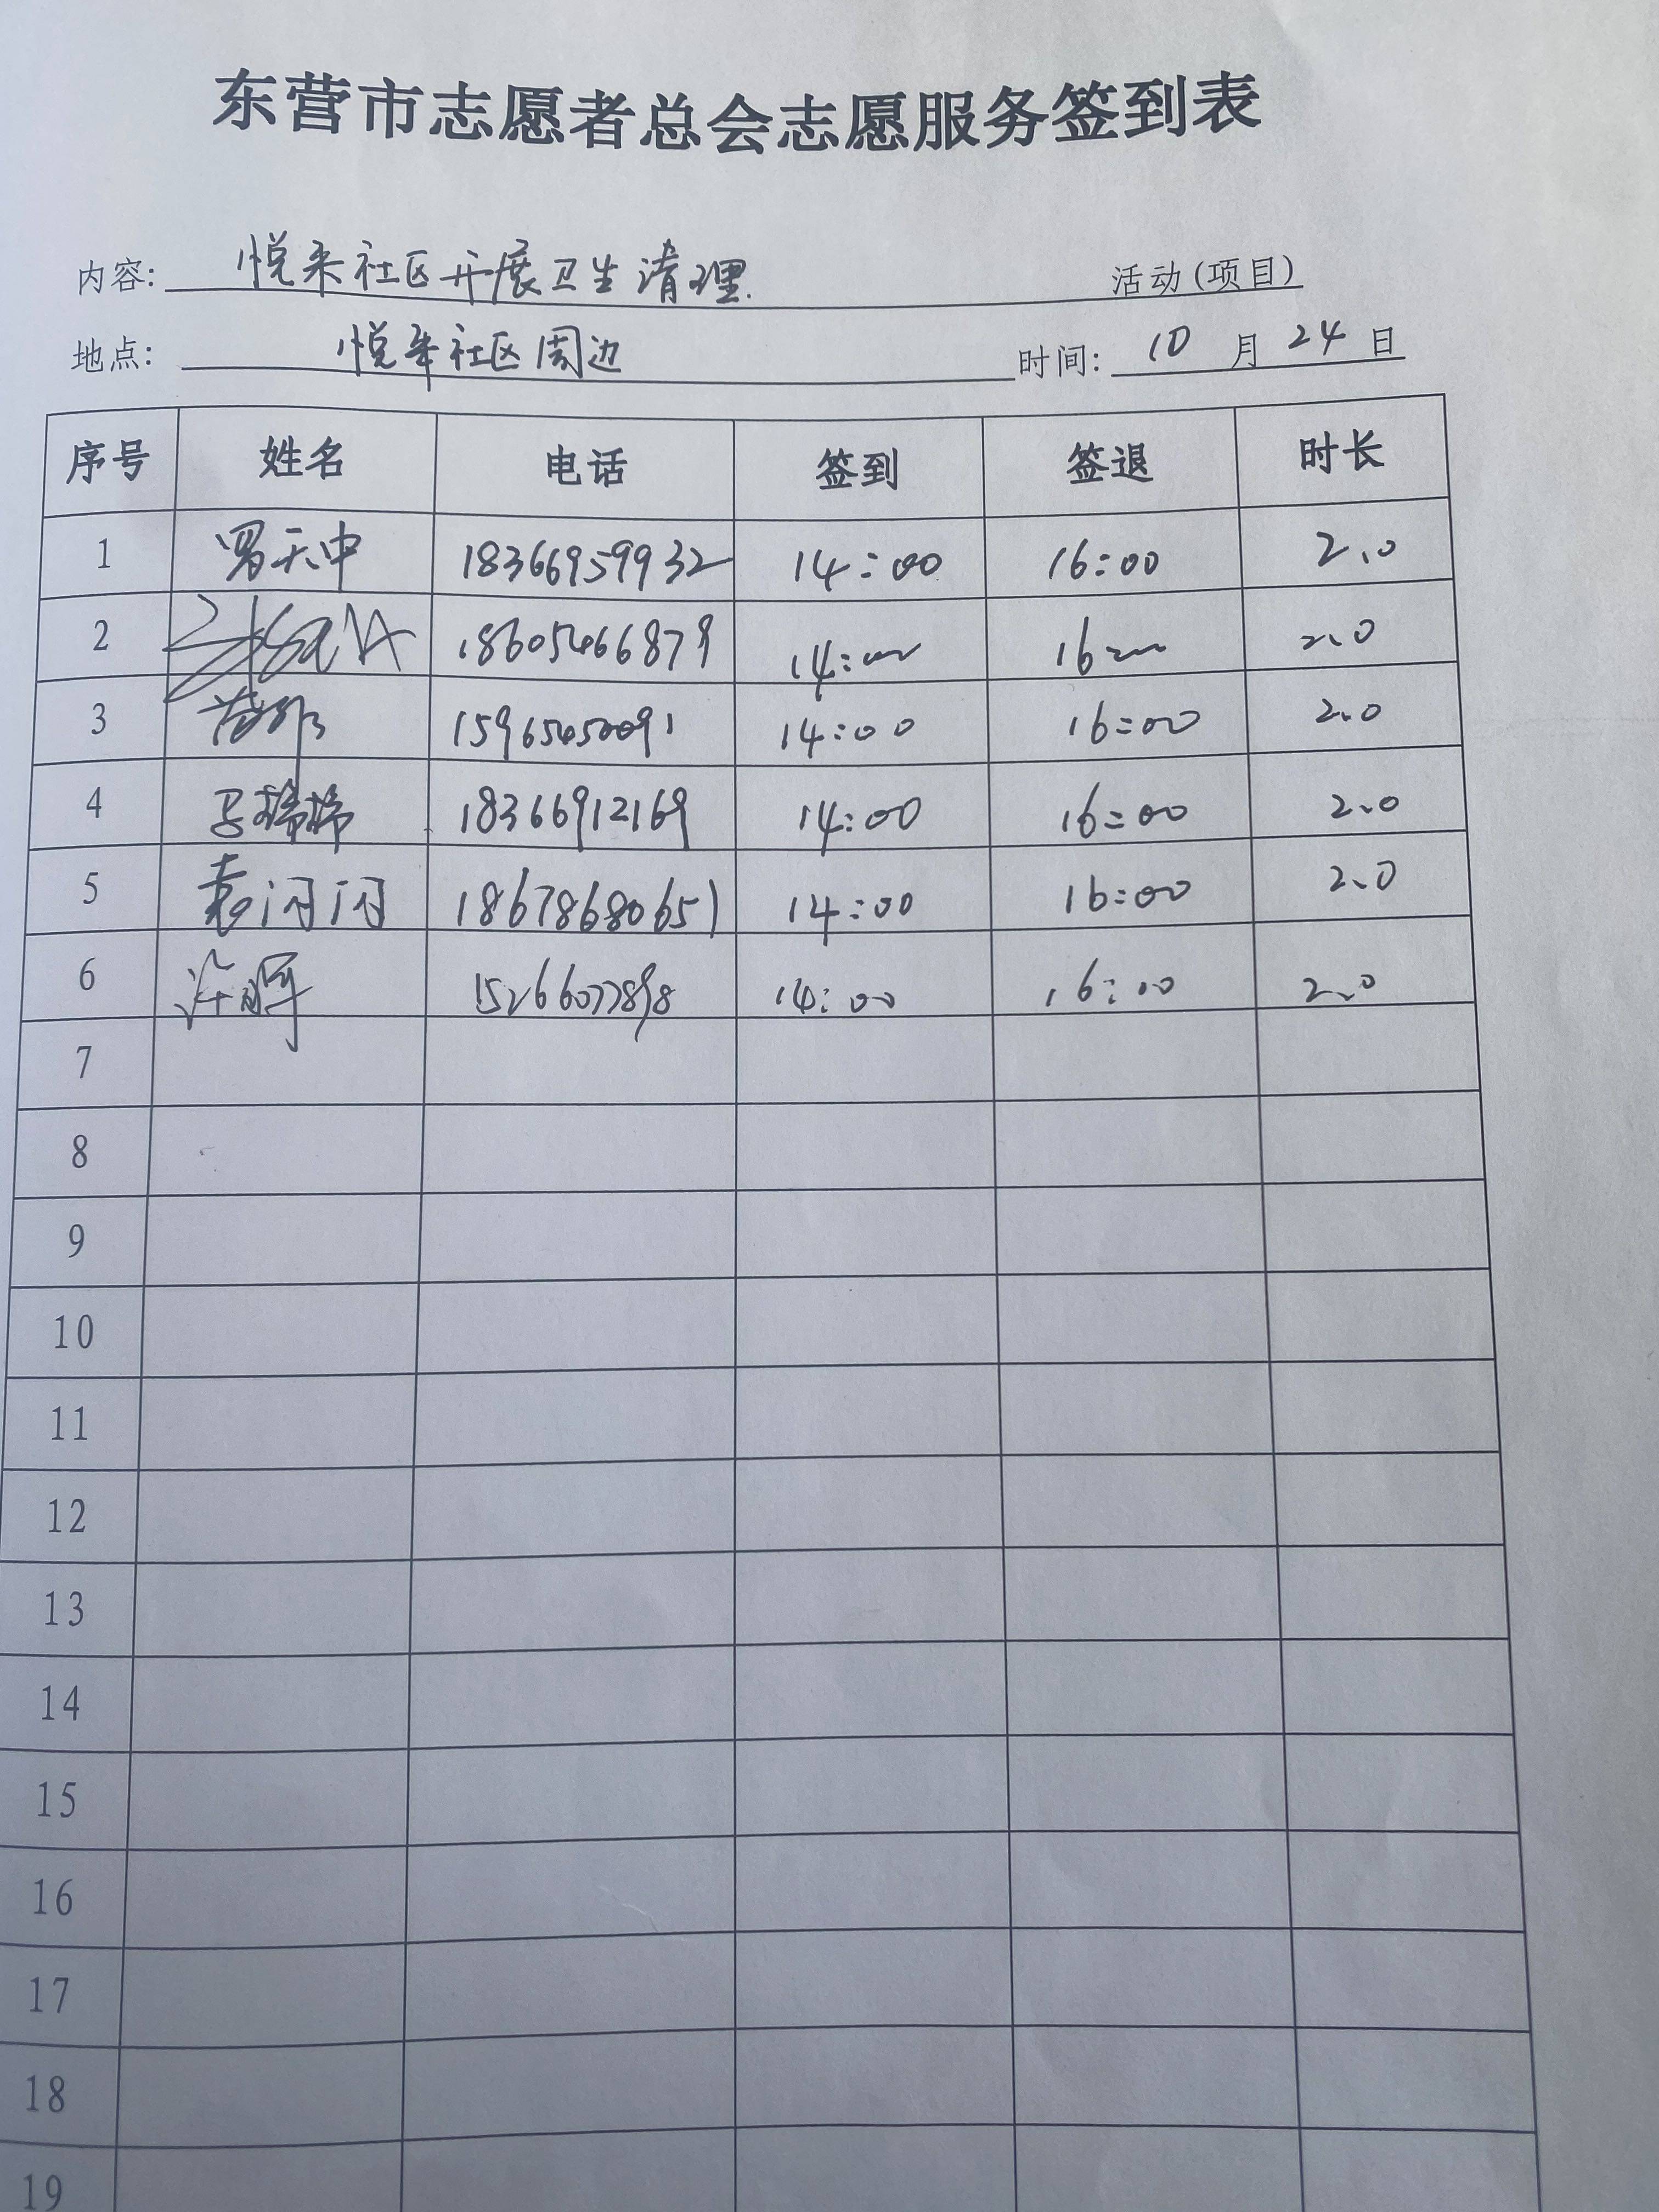 东营市志愿者总会志愿服务签到表
内容: 悦来社区开展卫生清理. 活动(项目)
地点: 悦来社区周边 时间: 10 月 24 日
序号 姓名 电话 签到 签退 时长
1 罗天中 18366959932 14:00 16:00 2.0
2 18605466879 14:00 16:00 2.0
3 14:00 16:00 2.0
4 18366912169 14:00 16:00 2.0
5 袁闪闪 18678680651 14:00 16:00 2.0
6 许晖 15266077898 14:00 16:00 2.0
7
8
9
10
11
12
13
14
15
16
17
18
19